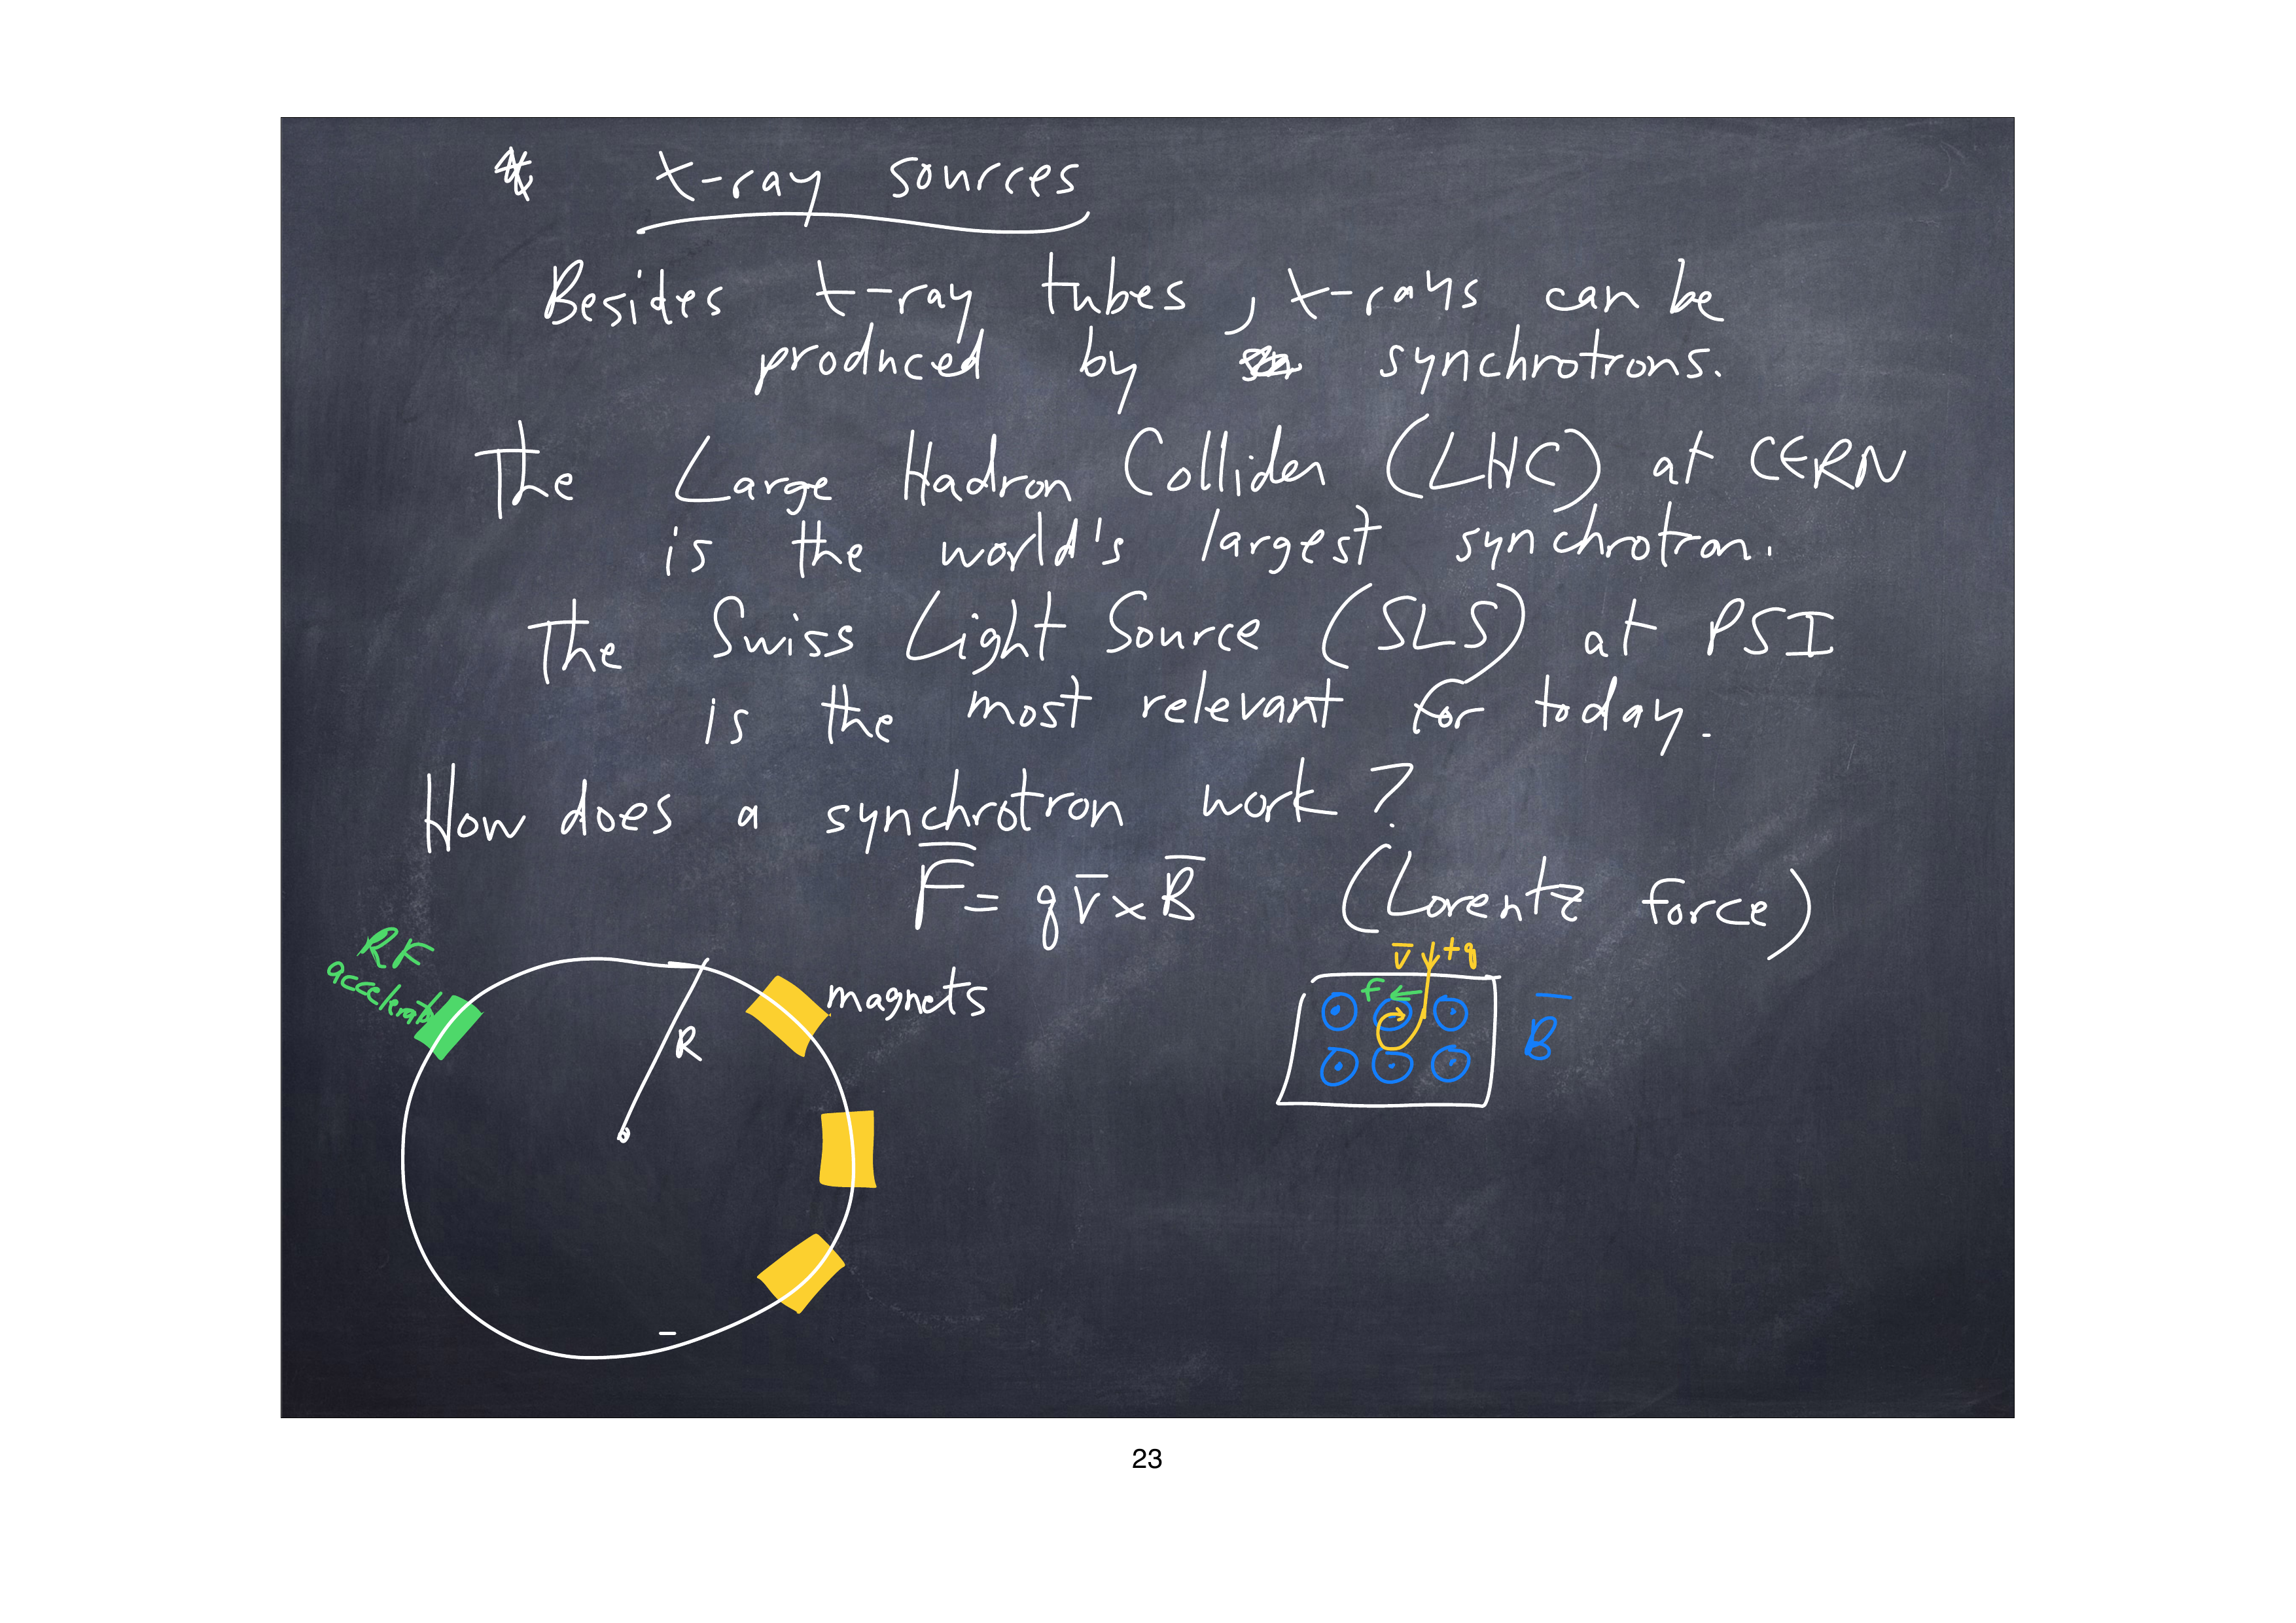 * x-ray sources
Besides x-ray tubes, x-rays can be
produced by synchrotrons.
The Large Hadron Collider (LHC) at CERN
is the world's largest synchrotron.
The Swiss Light Source (SLS) at PSI
is the most relevant for today.
How does a synchrotron work?
F̅ = q v̅ × B̅ (Lorentz force)
RF
accelerator
R
magnets
v̅ +q
F
B̅
23